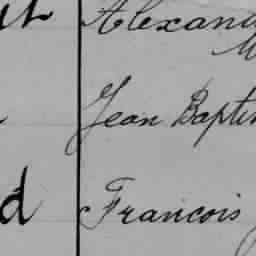 Alexand
Jean Baptis
d Francois